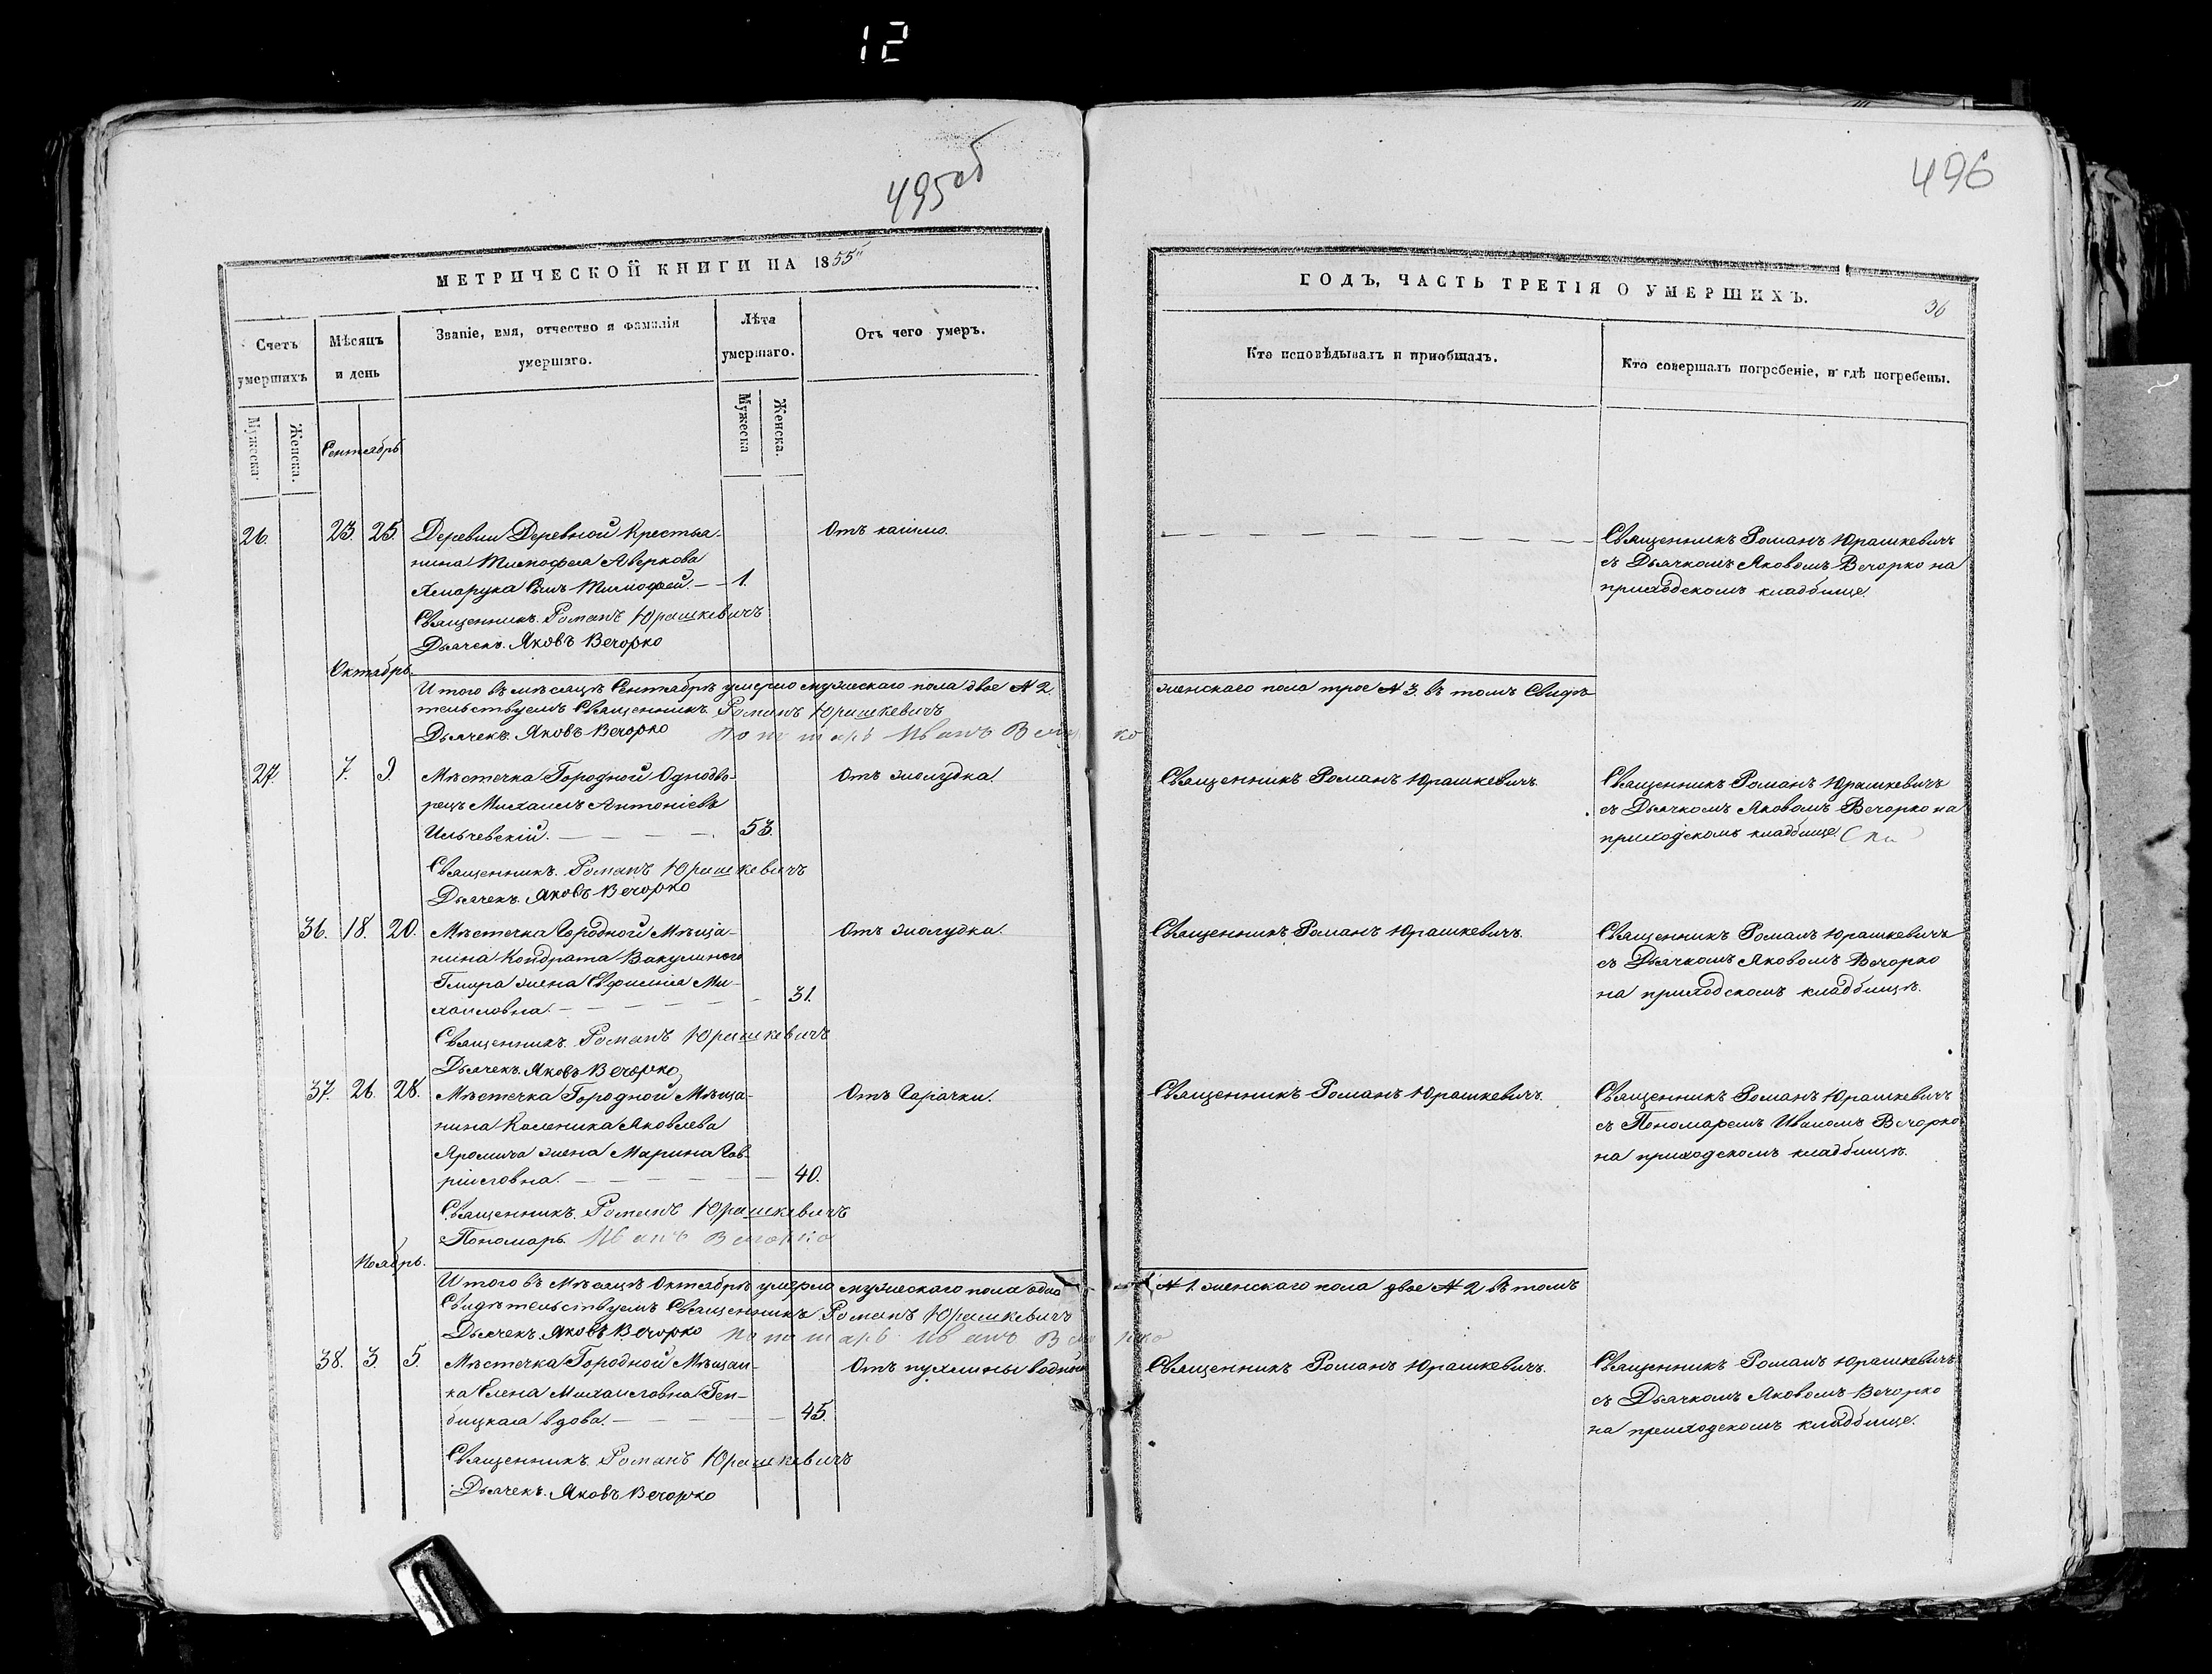 12
495 об
496
МЕТРИЧЕСКОЙ КНИГИ НА 1855
ГОДЪ, ЧАСТЬ ТРЕТІЯ О УМЕРШИХЪ.
36
Счетъ умершихъ
Мѣсяцъ и день
Званіе, имя, отчество и фамилія умершаго.
Лѣта умершаго.
Отъ чего умеръ.
Кто исповѣдывалъ и пріобщалъ.
Кто совершалъ погребеніе, и гдѣ погребены.
Мужеска
Женска.
Мужеска
Женска.
Сентябрь
26. 23. 25. Деревни Деревной Крестья- Отъ кашлю. Священникъ Романъ Юрашкевичъ
нина Тимофея Аверкова съ Дьячкомъ Яковомъ Вечорко на
Хмарука сынъ Тимофей. 1. приходскомъ кладбище.
Священникъ. Романъ Юрашкевичъ
Дьячекъ. Яковъ Вечорко
Октябрь.
Итого въ мѣсяцѣ Сентябрѣ умерло мужескаго пола двое № 2. женскаго пола трое № 3. въ томъ Свидѣ-
тельствуемъ Священникъ. Романъ Юрашкевичъ
Дьячекъ. Яковъ Вечорко Пономарь Иванъ Вечорко
27. 7. 9. Мѣстечка Городной Однодво- Отъ жолудка. Священникъ Романъ Юрашкевичъ. Священникъ Романъ Юрашкевичъ
рецъ Михаилъ Антоніевъ съ Дьячкомъ Яковомъ Вечорко на
Ильчевскій. 53. приходскомъ кладбище.
Священникъ. Романъ Юрашкевичъ
Дьячекъ. Яковъ Вечорко
36. 18. 20. Мѣстечка Городной Мѣща- Отъ жолудка. Священникъ Романъ Юрашкевичъ. Священникъ Романъ Юрашкевичъ
нина Кондрата Вакулиного съ Дьячкомъ Яковомъ Вечорко
жена Евфимія Ми- 31. на приходскомъ кладбищѣ.
хаиловна.
Священникъ. Романъ Юрашкевичъ
Дьячекъ. Яковъ Вечорко
37. 26. 28. Мѣстечка Городной Мѣща- Отъ Гарачки. Священникъ Романъ Юрашкевичъ. Священникъ Романъ Юрашкевичъ
нина Каленика Яковлева съ Пономаремъ Иваномъ Вечорко
Яромича жена Марина Гав- на приходскомъ кладбищѣ.
рииловна. 40.
Священникъ. Романъ Юрашкевичъ
Пономарь. Иванъ Вечорко
Ноябрь.
Итого въ Мѣсяцѣ Октябрѣ умерло мужескаго пола одно № 1. женскаго пола двое № 2 въ томъ
Свидѣтельствуемъ Священникъ Романъ Юрашкевичъ
Дьячекъ. Яковъ Вечорко Пономарь Иванъ Вечорко
38. 3. 5. Мѣстечка Городной Мѣщан- Отъ пухлины водной Священникъ Романъ Юрашкевичъ. Священникъ Романъ Юрашкевичъ
ка Елена Михаиловна Ген- съ Дьячкомъ Яковомъ Вечорко
бицкая вдова. 45. на приходскомъ кладбище.
Священникъ. Романъ Юрашкевичъ
Дьячекъ. Яковъ Вечорко